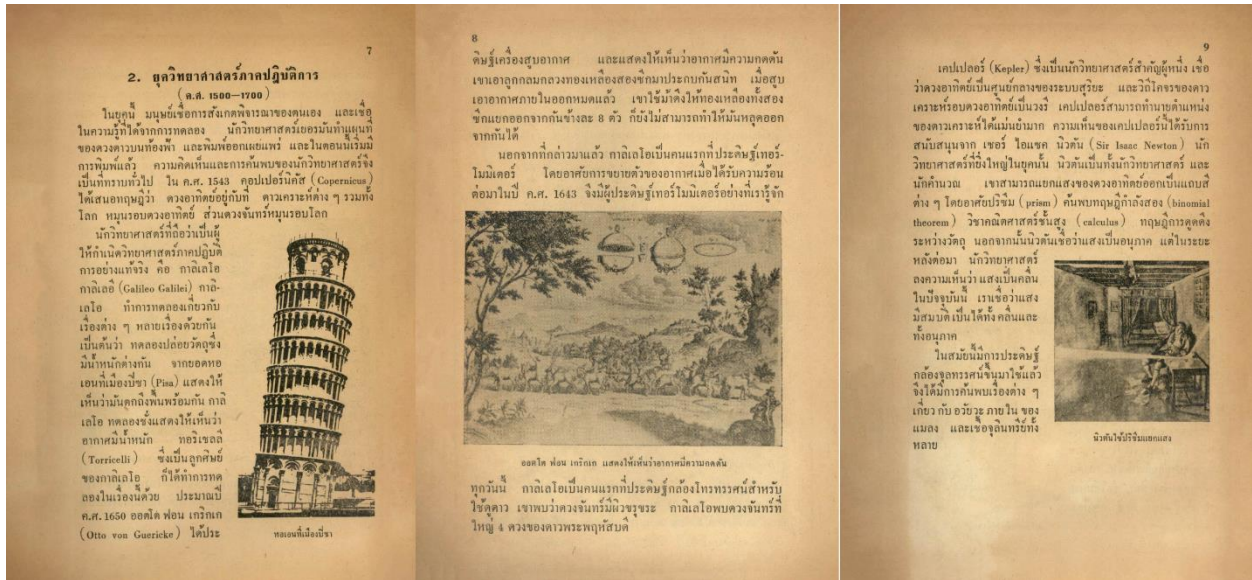 7
2. ยุควิทยาศาสตร์ภาคปฎิบัติการ
(ค.ศ. 1500—1700)
ในยุคนี้ มนุษย์เชื่อการสังเกตพิจารณาของตนเอง และเชื่อ
ในความรู้ที่ได้จากการทดลอง นักวิทยาศาสตร์เยอรมันทำแผนที่
ของดวงดาวบนท้องฟ้า และพิมพ์ออกเผยแพร่ และในตอนนี้เริ่มมี
การพิมพ์แล้ว ความคิดเห็นและการค้นพบของนักวิทยาศาสตร์จึง
เป็นที่ทราบทั่วไป ใน ค.ศ. 1543 คอปเปอร์นิคัส (Copernicus)
ได้เสนอทฤษฎีว่า ดวงอาทิตย์อยู่กับที่ ดาวเคราะห์ต่าง ๆ รวมทั้ง
โลก หมุนรอบดวงอาทิตย์ ส่วนดวงจันทร์หมุนรอบโลก
นักวิทยาศาสตร์ที่ถือว่าเป็นผู้
ให้กำเนิดวิทยาศาสตร์ภาคปฎิบัติ
การอย่างแท้จริง คือ กาลิเลโอ
กาลิเลอี (Galileo Galilei) กาลิ-
เลโอ ทำการทดลองเกี่ยวกับ
เรื่องต่าง ๆ หลายเรื่องด้วยกัน
เป็นต้นว่า ทดลองปล่อยวัตถุซึ่ง
มีน้ำหนักต่างกัน จากยอดหอ
เอนที่เมืองปีซา (Pisa) แสดงให้
เห็นว่ามันตกถึงพื้นพร้อมกัน กาลิ
เลโอ ทดลองชั่งแสดงให้เห็นว่า
อากาศมีน้ำหนัก ทอริเชลลี
(Torricelli) ซึ่งเป็นลูกศิษย์
ของกาลิเลโอ ก็ได้ทำการทด
ลองในเรื่องนี้ด้วย ประมาณปี
ค.ศ. 1650 ออตโต ฟอน เกริกเก
(Otto von Guericke) ได้ประ
หอเอนที่เมืองปีซา
8
ดิษฐ์เครื่องสูบอากาศ และแสดงให้เห็นว่าอากาศมีความกดดัน
เขาเอาลูกกลมกลวงทองเหลืองสองซีกมาประกบกันสนิท เมื่อสูบ
เอาอากาศภายในออกหมดแล้ว เขาใช้ม้าดึงให้ทองเหลืองทั้งสอง
ซีกแยกออกจากกันข้างละ 8 ตัว ก็ยังไม่สามารถทำให้มันหลุดออก
จากกันได้
นอกจากที่กล่าวมาแล้ว กาลิเลโอเป็นคนแรกที่ประดิษฐ์เทอร์-
โมมิเตอร์ โดยอาศัยการขยายตัวของอากาศเมื่อได้รับความร้อน
ต่อมาในปี ค.ศ. 1643 จึงมีผู้ประดิษฐ์เทอร์โมมิเตอร์อย่างที่เรารู้จัก
ออตโต ฟอน เกริกเก แสดงให้เห็นว่าอากาศมีความกดดัน
ทุกวันนี้ กาลิเลโอเป็นคนแรกที่ประดิษฐ์กล้องโทรทรรศน์สำหรับ
ใช้ดูดาว เขาพบว่าดวงจันทร์มีผิวขรุขระ กาลิเลโอพบดวงจันทร์ที่
ใหญ่ 4 ดวงของดาวพระพฤหัสบดี
9
เคปเปลอร์ (Kepler) ซึ่งเป็นนักวิทยาศาสตร์สำคัญผู้หนึ่ง เชื่อ
ว่าดวงอาทิตย์เป็นศูนย์กลางของระบบสุริยะ และวิถีโคจรของดาว
เคราะห์รอบดวงอาทิตย์เป็นวงรี เคปเปลอร์สามารถทำนายตำแหน่ง
ของดาวเคราะห์ได้แม่นยำมาก ความเห็นของเคปเปลอร์นี้ได้รับการ
สนับสนุนจาก เซอร์ ไอแซค นิวตัน (Sir Isaac Newton) นัก
วิทยาศาสตร์ที่ยิ่งใหญ่ในยุคนั้น นิวตันเป็นทั้งนักวิทยาศาสตร์ และ
นักคำนวณ เขาสามารถแยกแสงของดวงอาทิตย์ออกเป็นแถบสี
ต่าง ๆ โดยอาศัยปริซึม (prism) ค้นพบทฤษฎีกำลังสอง (binomial
theorem) วิชาคณิตศาสตร์ชั้นสูง (calculus) ทฤษฎีการดูดดึง
ระหว่างวัตถุ นอกจากนั้นนิวตันเชื่อว่าแสงเป็นอนุภาค แต่ในระยะ
หลังต่อมา นักวิทยาศาสตร์
ลงความเห็นว่า แสงเป็นคลื่น
ในปัจจุบันนี้ เราเชื่อว่าแสง
มีสมบัติ เป็นได้ทั้ง คลื่นและ
ทั้งอนุภาค
ในสมัยนี้มีการประดิษฐ์
กล้องจุลทรรศน์ขึ้นมาใช้แล้ว
จึงได้มีการค้นพบเรื่องต่าง ๆ
เกี่ยว กับ อวัยวะ ภายใน ของ
แมลง และเชื้อจุลินทรีย์ทั้ง
หลาย
นิวตันใช้ปริซึมแยกแสง